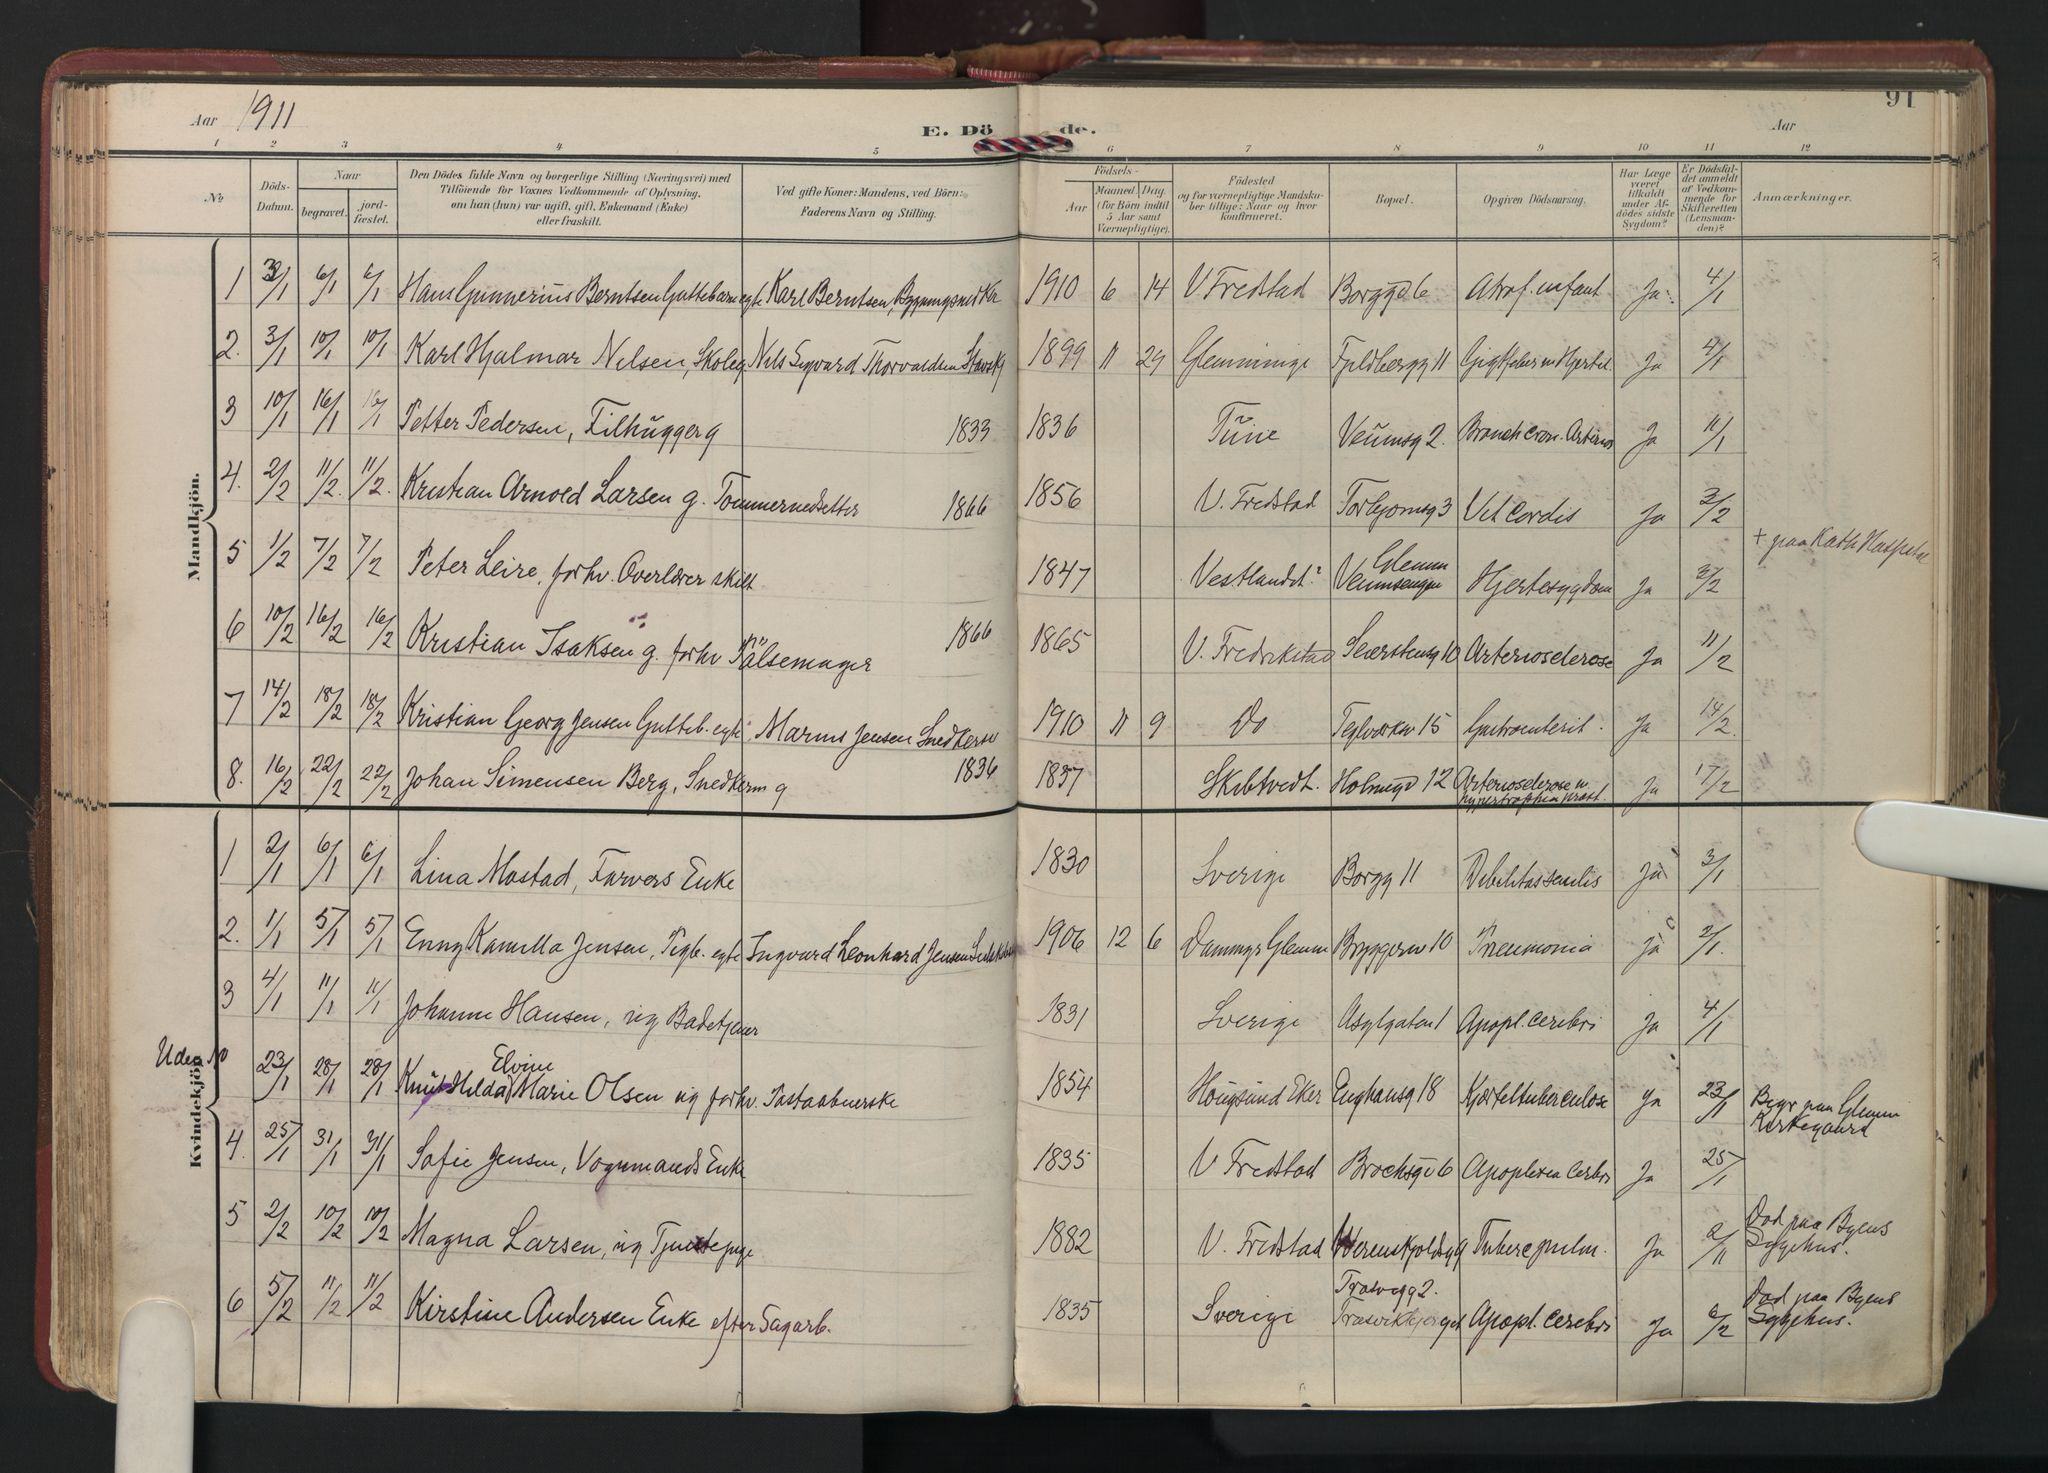 Aar 1911
E. Dö de.
Aar
91
1 2 3 4 5 6 7 8 9 10 11 12
No
Döds-Datum.
Naar
begravet.
jord-fæstet.
Den Dödes fulde Navn og borgerlige Stilling (Næringsvei) med
Tilföiende for Voxnes Vedkommende af Oplysning,
om han (hun) var ugift, gift, Enkemand (Enke)
eller fraskilt.
Ved gifte Koner: Mandens, ved Börn:
Faderens Navn og Stilling.
Födsels-
Aar
Maaned. Dag.
(for Börn indtil
5 Aar samt
Værnepligtige).
Födested
og for værnepligtige Mandsku-
ber tillige: Naar og hvor
konfirmeret.
Bopæl.
Opgiven Dödsaarsag.
Har Læge
været
tilkaldt
under Af-
dödes sidste
Sygdom?
Er Dödsfal-
det anmeldt
af Vedkom-
mende for
Skifteretten
(Lensman-
den)?
Anmærkninger.
Mandkjön.
1 3/1 6/1 6/1 Hans Gunnerius Berntsen Guttebarn egte Karl Berntsen, 1910 6 14 V Fredstad Borggd 6 Atrof. infant Ja 4/1
2. 3/1 10/1 10/1 Karl Hjalmar Nelsen, Skoleg Nels Sigvard Thorvaldsen 1899 11 29 Glemminge Fjeldbergg 11 Ja 4/1
3 10/1 16/1 16/1 Petter Pedersen, Filhugger g 1833 1836 Tune Veumsg 2. Bronch cron. Ja 11/1
4. 2/2 11/2. 11/2. Kristian Arnold Larsen g. Tommernedsetter 1866 1856 V. Fredstad 3 Vit Cordis Ja 3/2
5 1/2 7/2 7/2 Peter Leire, forhv. Overlærer skilt 1847 Vestlandet? Glemm Hjertesygdom Ja 3/2 + paa Kath
6 10/2 16/2 16/2 Kristian Isaksen g. forhv Pølsemager 1866 1865 V. Fredrikstad 10 Arteriosclerose Ja 11/2
7 14/2 18/2 18/2 Kristian Georg Jensen Gutteb. egte, Marius Jensen 1910 11 9 Do Teglverksv 15 Gastroenterit. Ja 14/2.
8. 16/2 22/2 22/2 Johan Simensen Berg, Snedkerm g 1836 1837 Skibtvedt. 12 Arteriosclerose Ja 17/2
Kvindekjön.
1 2/1 6/1 6/1 Lina Mostad, Farvers Enke 1830 Sverige Borgg 11 Debilitas senilis Ja 3/1
2. 1/1 5/1 5/1 Enny Kamilla Jensen, Pigb. egte Ingvard Leonhard Jensen 1906 12 6 Dammyr Glemm Bryggeriv 10 Pneumonia Ja 2/1.
3 4/1 11/1 11/1 Johanne Hansen, ug 1831 Sverige Asylgaten 1 Apopl. cerebri Ja 4/1
Uden No 23/1 28/1 28/1 Elvine
Hilda Marie Olsen ug forhv. 1854 Hougsund Eker Enghausg 18 Kjerteltuberculose Ja 23/1 Begr paa Glemm
Kirkegaard
4. 25/1 31/1 31/1 Sofie Jensen, Vognmands Enke 1835 V Fredstad Brochsgd 6 Apoplexia Cerebri Ja 25/1
5 2/2 10/2 10/2 Magna Larsen, ug Tjenstepige 1882 V. Fredstad Werenskjoldsg 9 Tuberc pulm. Ja Død paa Byens
Sygehus.
6 5/2 11/2 11/2 Kirstine Andersen Enke efter Sagarb. 1835 Sverige Trosvigg 2. Apopl. cerebri Ja 6/2 Død paa Byens
Sygehus.